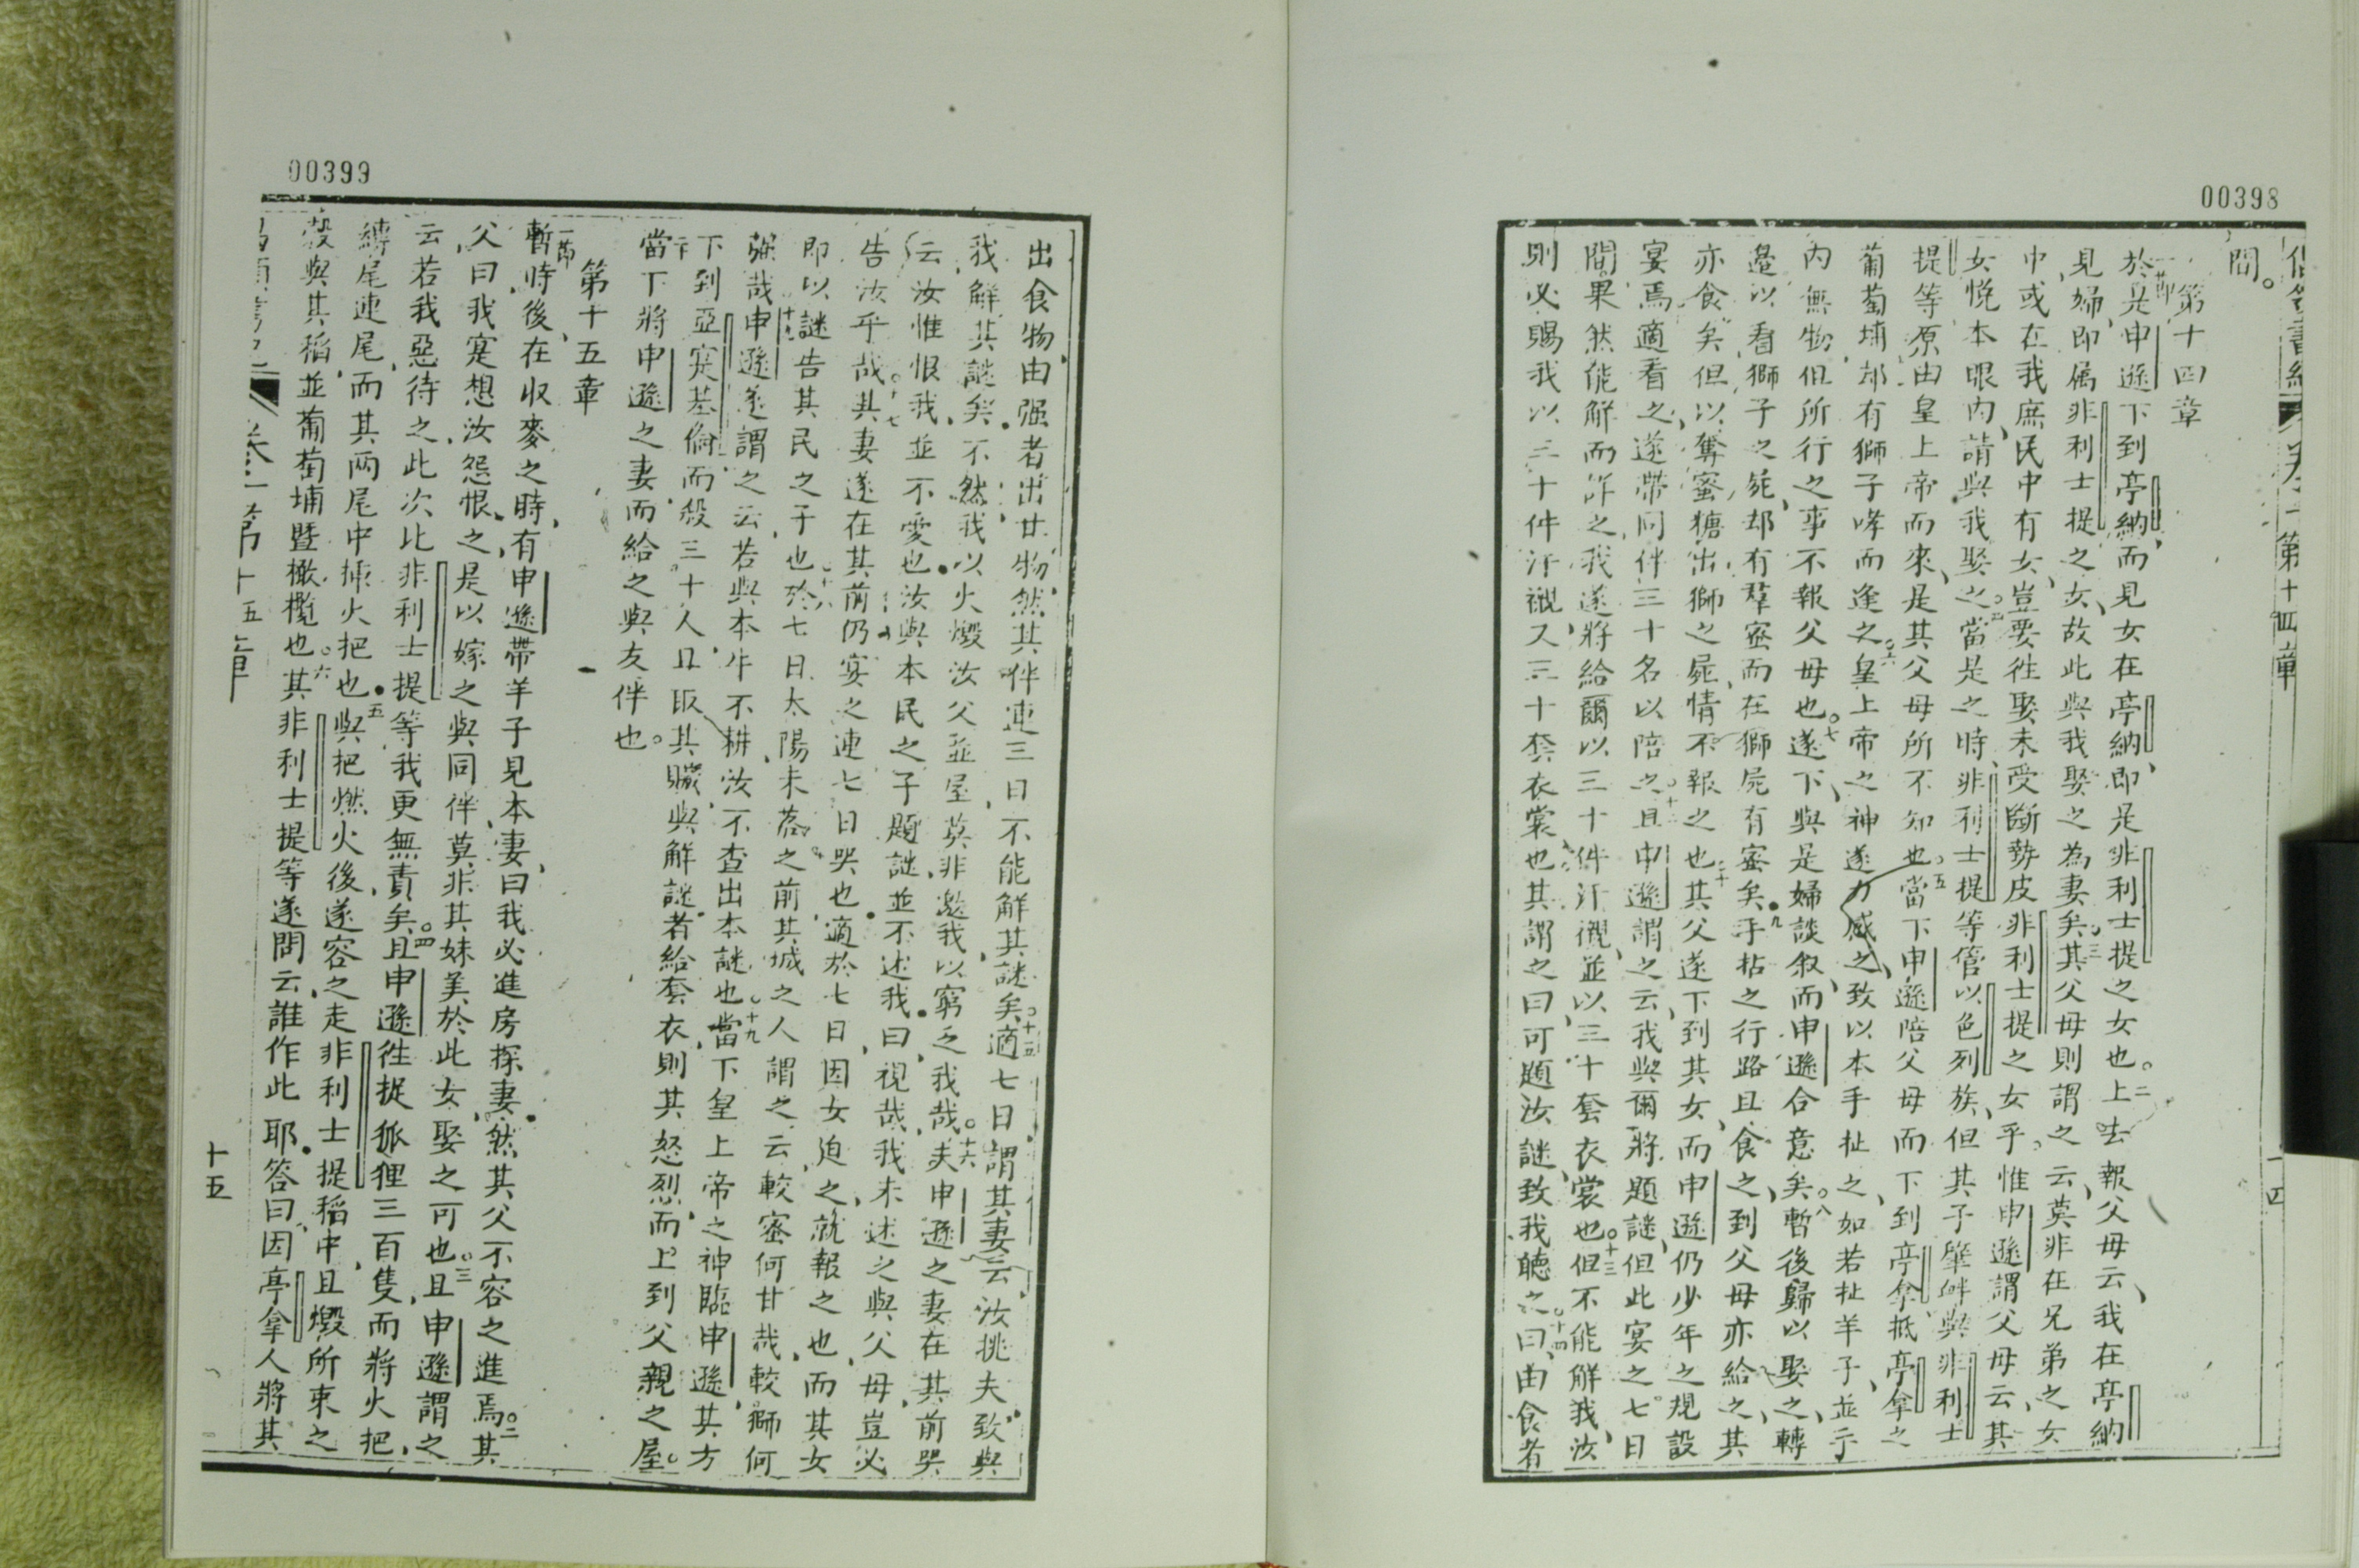 00398
第十四章
間。
第十四章
一節於是申遜下到亭納、而見女在亭納、即是非利士提之女也。二上去報父母云、我在亭納
見婦、即屬非利士提之女、故此與我娶之為妻矣。三其父母則謂之云、莫非在兄弟之女
中、或在我庶民中有女、豈要往娶未受斷勢皮非利士提之女乎。惟申遜謂父母云、其
女悅本眼內、請與我娶之。四當是之時、非利士提等管以色列族、但其子肇衅與非利士
提等、原由皇上帝而來、是其父母所不知也。五當下申遜陪父母而下到亭拿、抵亭拿之
葡萄埔、却有獅子哮而逢之。六皇上帝之神遂力感之、致以本手扯之、如若扯羊子、並手
內無物、但所行之事不報父母也。七遂下、與是婦談敘、而申遜合意矣。八暫後歸以娶之、轉
邊以看獅子之死、却有羣蜜而在獅屍有蜜矣。九手拈之行路且食之、到父母亦給之、其
亦食矣、但以奪蜜糖出獅之屍情不報之也。十其父遂下到其女、而申遜仍少年之規設
宴焉。適看之、遂帶同伴三十名以陪之。且申遜謂之云、我與爾將題謎、但此宴之七日
間、果然能解而詳之、我遂將給爾以三十件汗襯、並以三十套衣裳也。十三但不能解我、汝
則必賜我以三十件汗襯、又三十套衣裳也。其謂之曰、可題汝謎、致我聽之。十四曰、由食者
00399
出食物、由强者出甘物、然其伴連三日不能解其謎矣。十五適七日、謂其妻云、汝挑夫致與
我解其謎矣、不然我以火燬汝父並屋、莫非邀我以窮乏我哉。十六夫申遜之妻在其前哭
云、汝惟恨我、並不愛也、汝與本民之子題謎、並不述我。曰、視哉、我未述之與父母、豈必
告汝乎哉。十七其妻遂在其前仍宴之連七日哭也。適於七日、因女迫之、就報之也、而其女
即以謎告其民之子也。十八於七日太陽未落之前、其城之人謂之云、較蜜何甘哉、較獅何
强哉、申遜遂謂之云、若與本牛不耕、汝不查出本謎也。十九當下皇上帝之神臨申遜、其方
下到亞寔基倫、而殺三十人、且取其贓、與解謎者給套衣、則其怒烈、而上到父親之屋。
二十當下將申遜之妻而給之與友伴也。
第十五章
一節暫時後、在收麥之時、有申遜帶羊子見本妻、曰、我必進房探妻、然其父不容之進焉。二其
父曰、我寔想汝怨恨之、是以嫁之與同伴、莫非其妹美於此女、娶之可也。三且申遜謂之
云、若我惡待之、此次比非利士提等、我更無責矣。四且申遜往捉狐狸三百隻、而將火把、
縛尾連尾、而其兩尾中㨂火把也。五與把燃火後、遂容之走非利士提稻中、且燬所束之
穀與其稻、並葡萄埔暨橄欖也。六其非利士提等遂問云、誰作此耶、答曰、因亭拿人將其
第十五章
十五